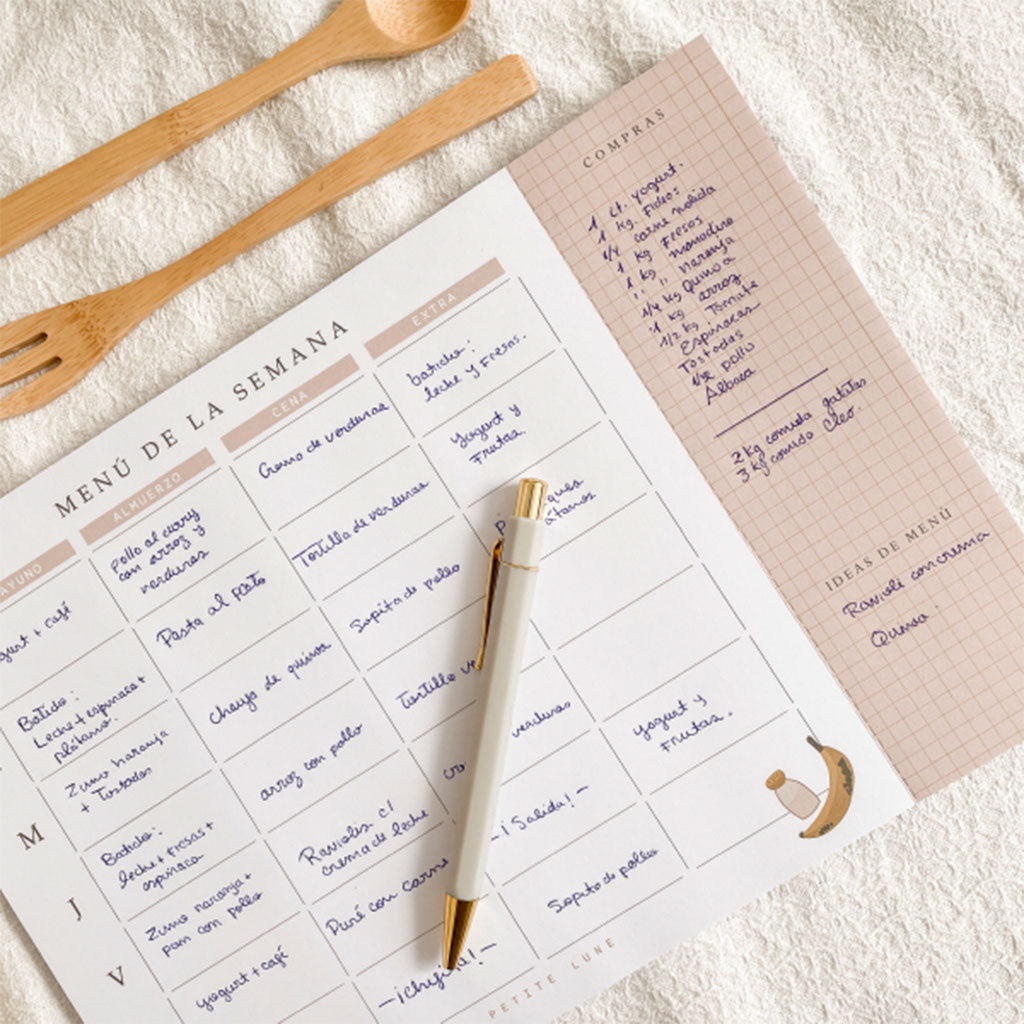 MENÚ DE LA SEMANA
AYUNO
ALMUERZO
CENA
EXTRA
gurt + café
pollo al curry
con arroz y
verduras
Crema de verduras
batido:
leche y Fresas.
Batido:
Leche + espinaca +
plátano.
Pasta al pesto
Tortilla de verduras
Yogurt y
Frutas.
Zumo naranja
+ Tostadas
Chaufa de quinoa
Sopita de pollo
ques
átanos
M
Batido:
leche + fresas +
espinaca
arroz con pollo
Tortilla ve
J
Zumo naranja +
pan con pollo
Raviolis c/
crema de leche
cr
verduras
Yogurt y
Frutas.
V
yogurt + café
Puré con carne
- ¡ Salida! -
- ¡Chifita! -
Sopita de pollo
PETITE LUNE
COMPRAS
1 Lt. yogurt.
1 kg. Fideos
1/4 carne molida
1 kg Fresas
1 kg mandarina
" " naranja
1/4 kg Quinoa
1 kg arroz
1/2 kg Tomate
Espinacas
Tostadas
1/2 pollo
Albaca
2 kg comida gatitas
3 kg comida Cleo.
IDEAS DE MENÚ
Ravioli con crema
Quinoa